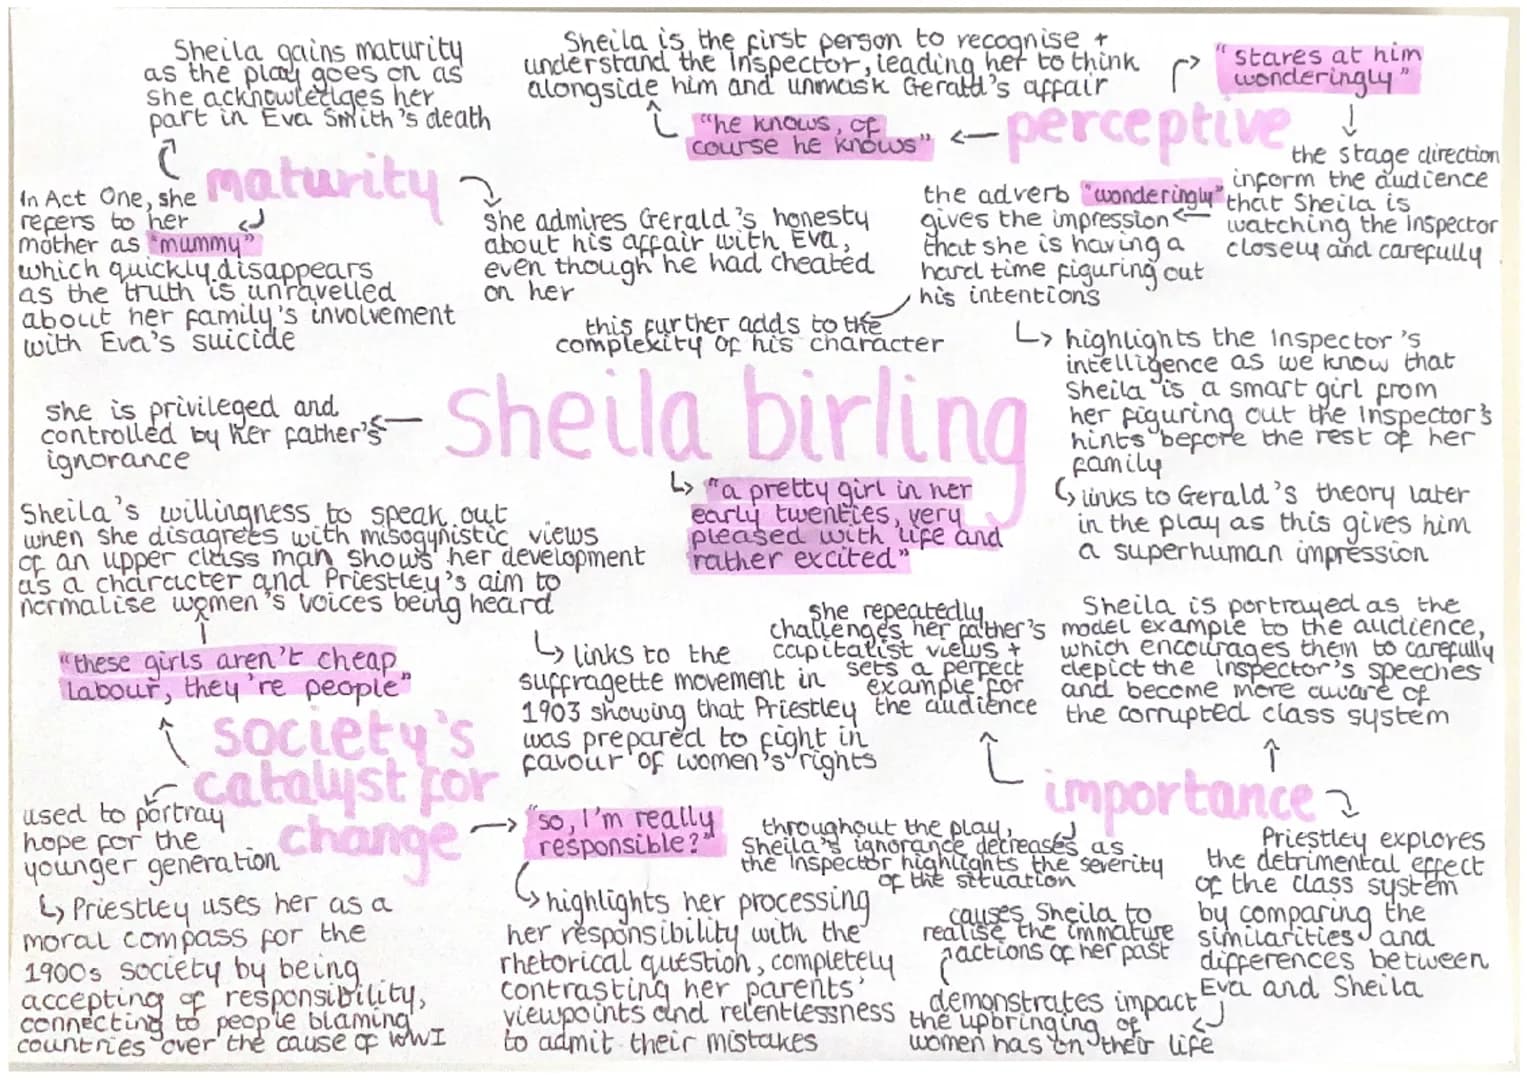 Sheila gains maturity
as the play goes on as
she acknowledges her
part in Eva Smith's death
maturity
In Act One, she
refers to her
mother as "mummy"
which quickly disappears
as the truth is unravelled
about her family's involvement
with Eva's suicide
She admires Gerald's honesty
about his affair with Eva,
even though he had cheated
on her
Sheila is the first person to recognise +
understand the Inspector, leading her to think
alongside him and unmask Gerald's affair
"he knows, of
course he knows"
perceptive
"stares at him
wonderingly"
the stage direction
inform the audience
that Sheila is
watching the Inspector
closely and carefully
the adverb "wonderingly"
gives the impression
that she is having a
hard time figuring out
his intentions
this further adds to the
complexity of his character
highlights the Inspector's
intelligence as we know that
Sheila is a smart girl from
her figuring out the Inspector's
hints before the rest of her
family
links to Gerald's theory later
in the play as this gives him
a superhuman impression
Sheila birling
she is privileged and
controlled by her father's
ignorance
"a pretty girl in her
early twenties, very
pleased with life and
rather excited"
Sheila's willingness to speak out
when she disagrees with misogynistic views
of an upper class man shows her development
as a character and Priestley's aim to
normalise women's voices being heard
"these girls aren't cheap
labour, they're people"
links to the
suffragette movement in
1903 showing that Priestley
was prepared to fight in
favour of women's rights
society's
catalyst for
change
used to portray
hope for the
younger generation
Priestley uses her as a
moral compass for the
1900s society by being
accepting of responsibility,
connecting to people blaming
countries over the cause of WWI
"so, I'm really
responsible?"
highlights her processing
her responsibility with the
rhetorical question, completely
contrasting her parents'
viewpoints and relentlessness
to admit their mistakes
she repeatedly
challenges her father's
capitalist views +
sets a perfect
example for
the audience
Sheila is portrayed as the
model example to the audience,
which encourages them to carefully
depict the Inspector's speeches
and become more aware of
the corrupted class system
importance
throughout the play,
Sheila's ignorance decreases as
the Inspector highlights the severity
of the situation
causes Sheila to
realise the immature
actions of her past
demonstrates impact
the upbringing of
women has on their life
Priestley explores
the detrimental effect
of the class system
by comparing the
similarities and
differences between
Eva and Sheila